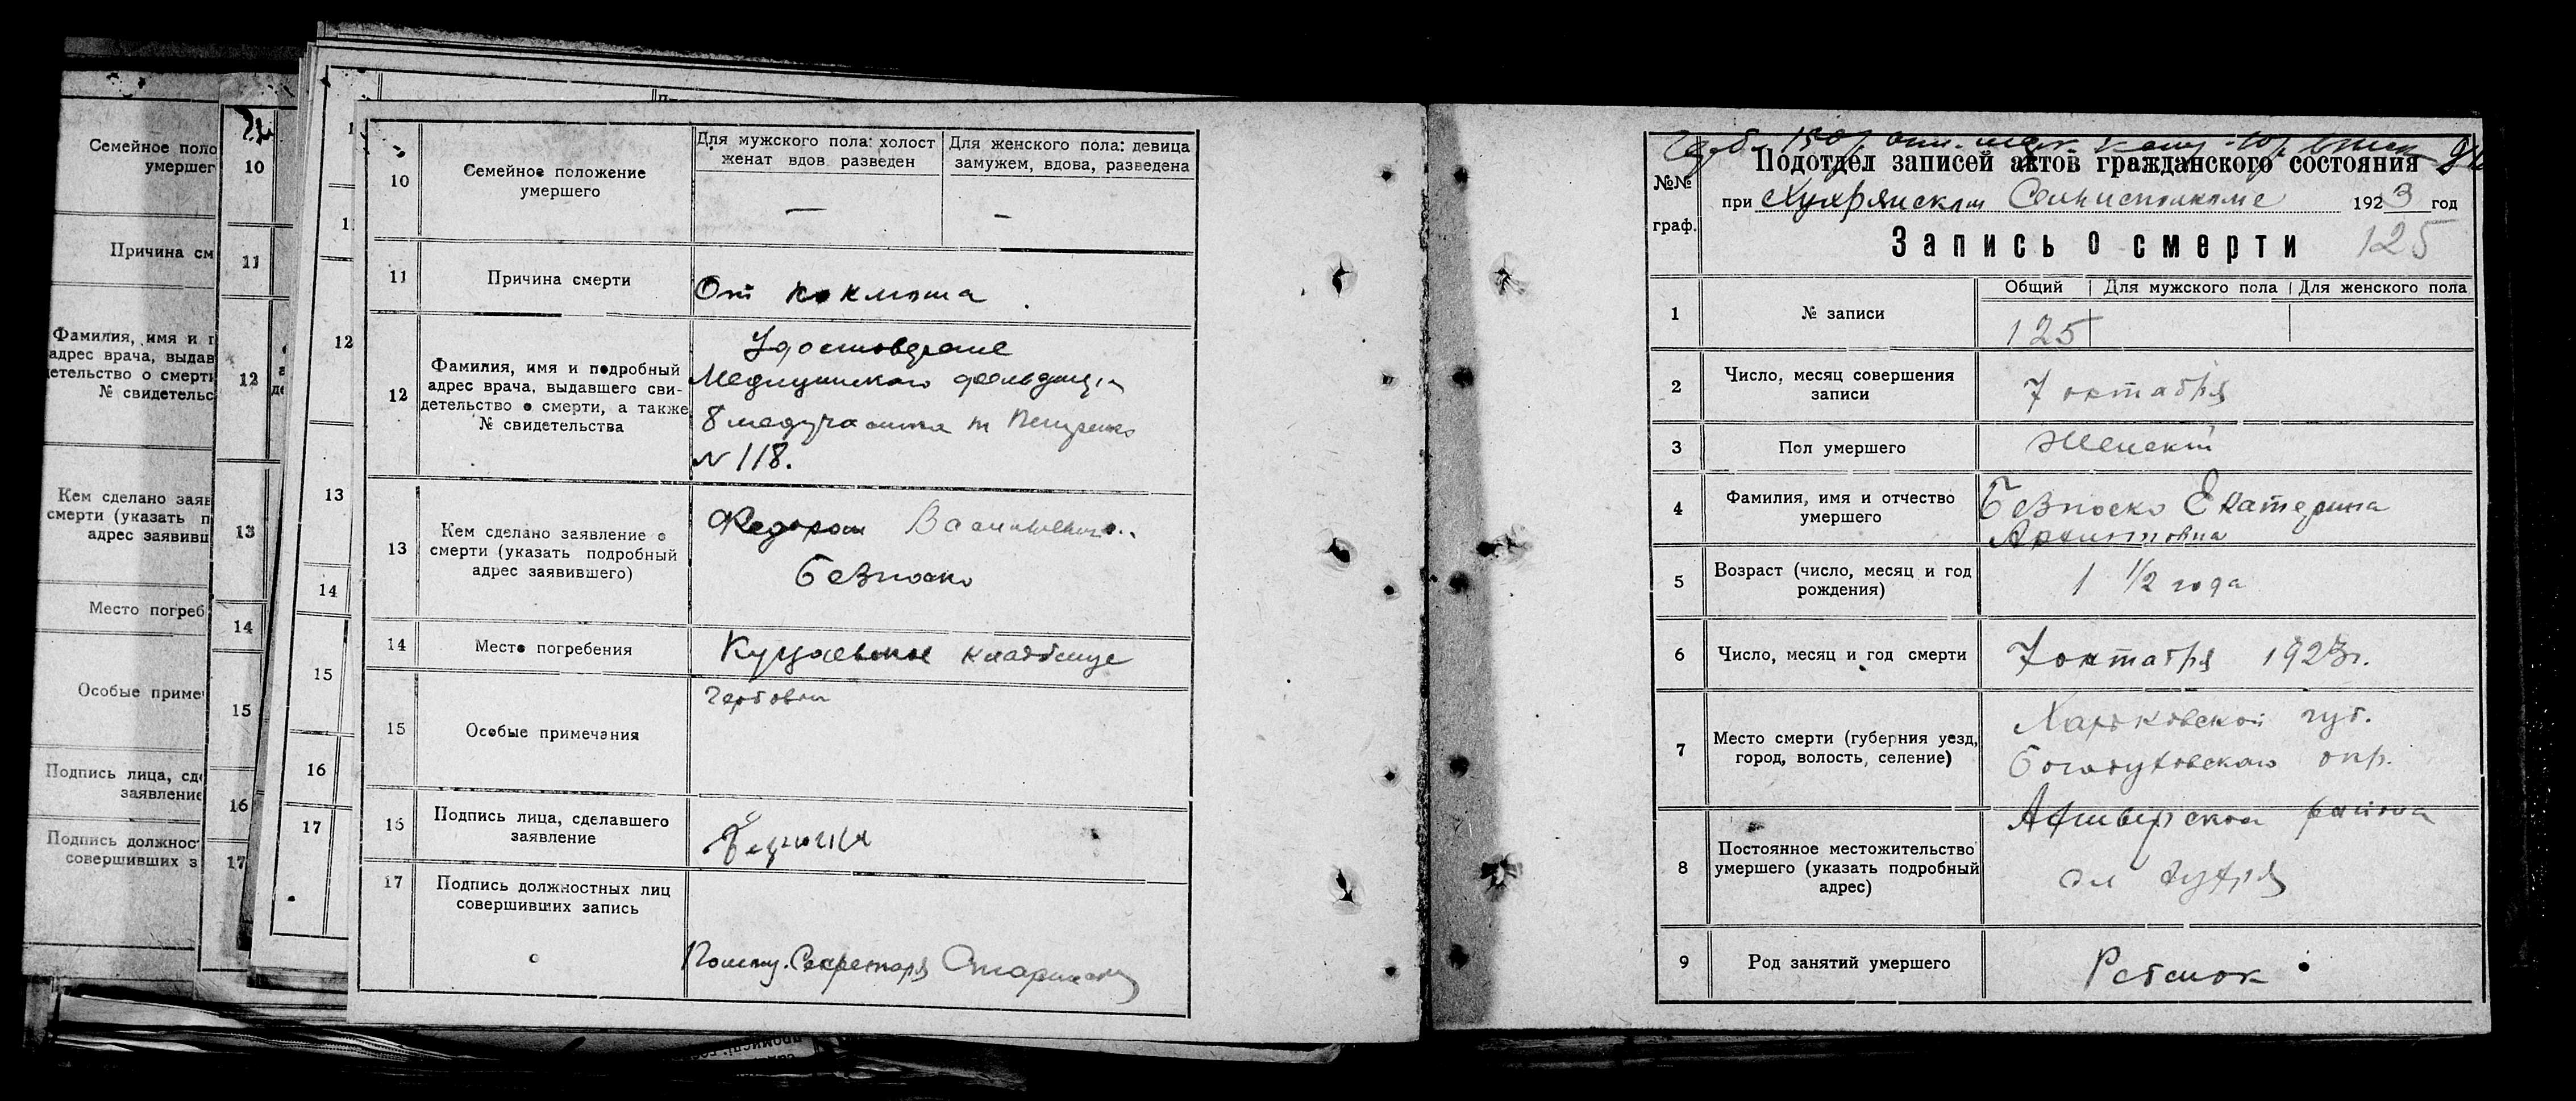 Семейное поло
умершег
Причина см
Фамилия, имя и п
адрес врача, выдав
детельство о смерт
№ свидетельс
Кем сделано заяв
смерти (указать п
адрес заявивш
Место погреб
Особые приме
Подпись лица, сд
заявление
Подпись должнос
совершивших з
10
11
12
13
14
15
16
17
12
13
14
15
16
17
10
Семейное положение
умершего
Для мужского пола: холост
женат вдов разведен
Для женского пола: девица
замужем, вдова, разведена
— —
11
Причина смерти
От коклюша
12
Фамилия, имя и подробный
адрес врача, выдавшего сви-
детельство о смерти, а также
№ свидетельства
Удостоверение
Медицинского
8 медучастка т
N 118.
13
Кем сделано заявление о
смерти (указать подробный
адрес заявившего)
Федором Васильевич
Безноско
14
Место погребения
кладбище
15
Особые примечания
16
Подпись лица, сделавшего
заявление
17
Подпись должностных лиц
совершивших запись
Помощ. Секретаря
№№
граф.
Подотдел записей актов гражданского состояния
при Хухрянском 1923 год
Запись о смерти 125
1
№ записи
Общий Для мужского пола Для женского пола
125
2
Число, месяц совершения
записи
7 октября
3
Пол умершего
Женский
4
Фамилия, имя и отчество
умершего
Безноско Екатерина
5
Возраст (число, месяц и год
рождения)
1 1/2 года
6
Число, месяц и год смерти
7 октября 1923 г.
7
Место смерти (губерния уезд,
город, волость, селение)
Харьковской губ.
Богодуховского окр.
8
Постоянное местожительство
умершего (указать подробный
адрес)
Ахтырского района
Хухря
9
Род занятий умершего
Ребенок